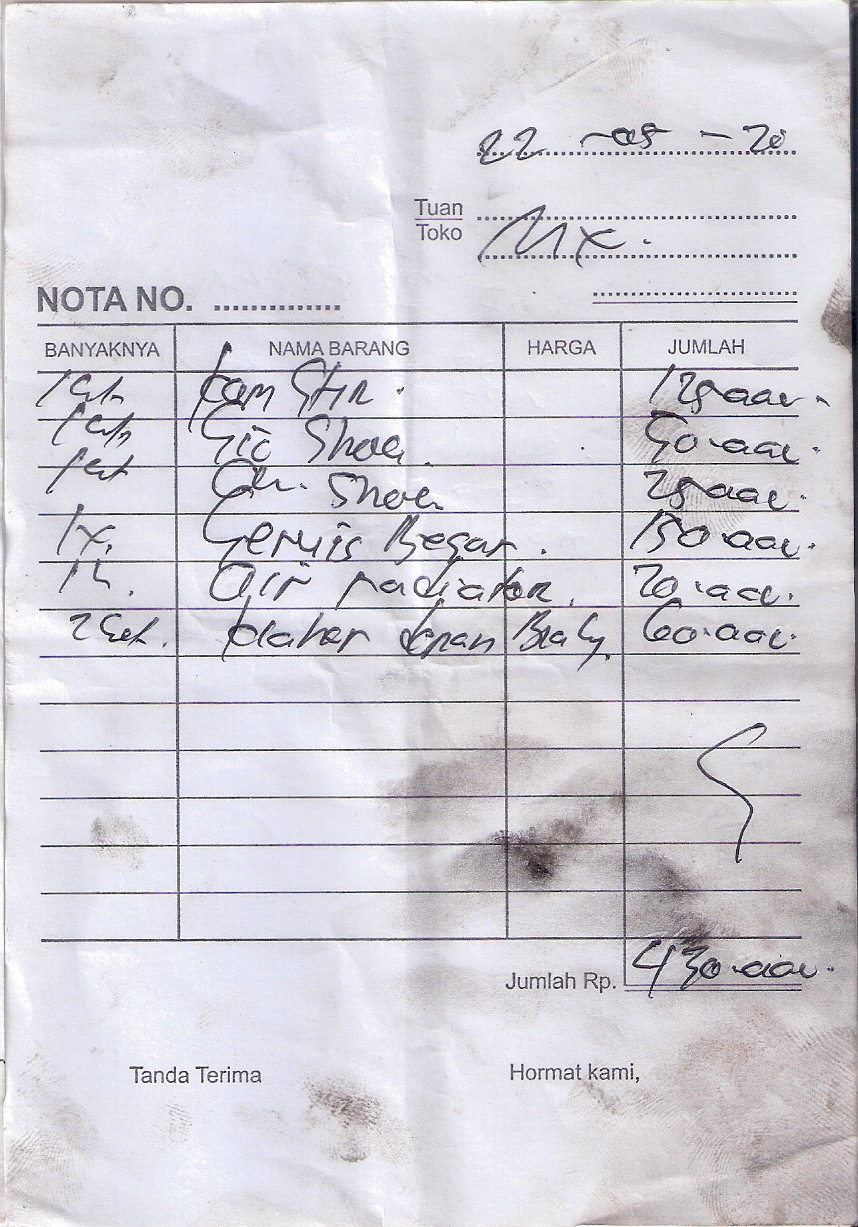 22 - 05 - 20
Tuan
Toko Mx.
NOTA NO. ..............
BANYAKNYA NAMA BARANG HARGA JUMLAH
1 set kom Stir. 125.000.
1 set Sic Shoe. 50.000.
1 set Shoe. 25.000.
1x. Servis Besar. 150.000.
1 L. air radiator. 20.000.
2 set. laher depan 60.000.
Jumlah Rp. 430.000.
Tanda Terima Hormat kami,